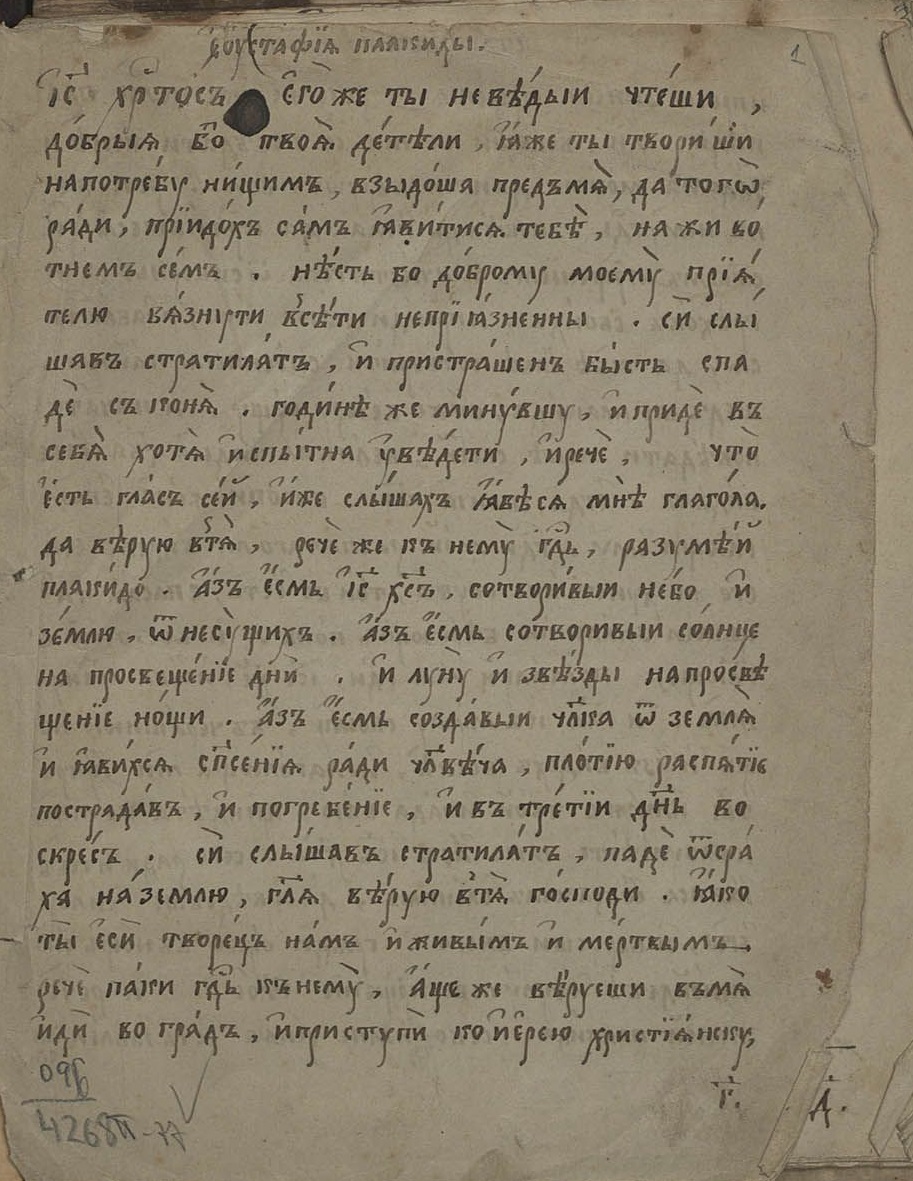 Єѵстафїѧ плакиды.
1
І҆с҃ хр҃тосъ є҆гоже ты невѣдыи чтеши,
добрыѧ бо твоѧ̀ дѣтѣли, ꙗ҆же ты твориши
напотребу нищимъ, взыдоша предъмѧ̀, да тогѡ̀
ради, прїидохъ самъ ꙗ҆витисѧ тебѣ̀, на живо
тнемъ семъ. нѣсть бо доброму моемꙋ̀ прїѧ
телю вѧзнути всѣти непрїꙗзненны. сїѝ слы
шавъ стратилатъ, и҆ пристрашенъ бысть спа
дѐ съ конѧ̀. годинѣ же минувшу, и҆ приде въ
себѧ̀ хотѧ̀ и҆спытна ѹ҆вѣдети, и҆рече, что̀
є҆сть гласъ сей, и҆же слышахъ ꙗ҆вѣсѧ мнѣ̀ глагола,
да вѣрую втѧ̀, рече же къ нему гдⷭ҇ь, разумѣй
плакидо. а҆зъ є҆смь і҆с҃ хс҃ъ, сотворивыи небо и҆
землю, ѿ несущихъ. а҆зъ є҆смь сотворивыи солнце
на просвещенїе днѝ. и҆ луну̀ и҆ звѣзды напросвѣ
щенїе нощи. а҆зъ є҆смь создавыи чл҃ка ѿ землѧ̀
и҆ ꙗ҆вихсѧ сп҃сенїѧ ради чл҃вѣча, плотїю распѧтїе
пострадавъ, и҆ погребенїе, и҆ въ третїи дн҃ь во
скресъ. сїѝ слышавъ стратилатъ, падѐ ѿстра
ха на землю, гл҃ѧ вѣрую втѧ̀ господи. ꙗ҆ко
ты̀ є҆сѝ творецъ намъ и҆ живымъ и҆ мертвымъ,
речѐ паки гдⷭ҇ь къ нему̀, а҆ще же вѣруеши въмѧ̀
и҆дѝ во градъ, и҆приступѝ ко і҆ерею християнску,
г҃.
д҃.
096
4268П-77